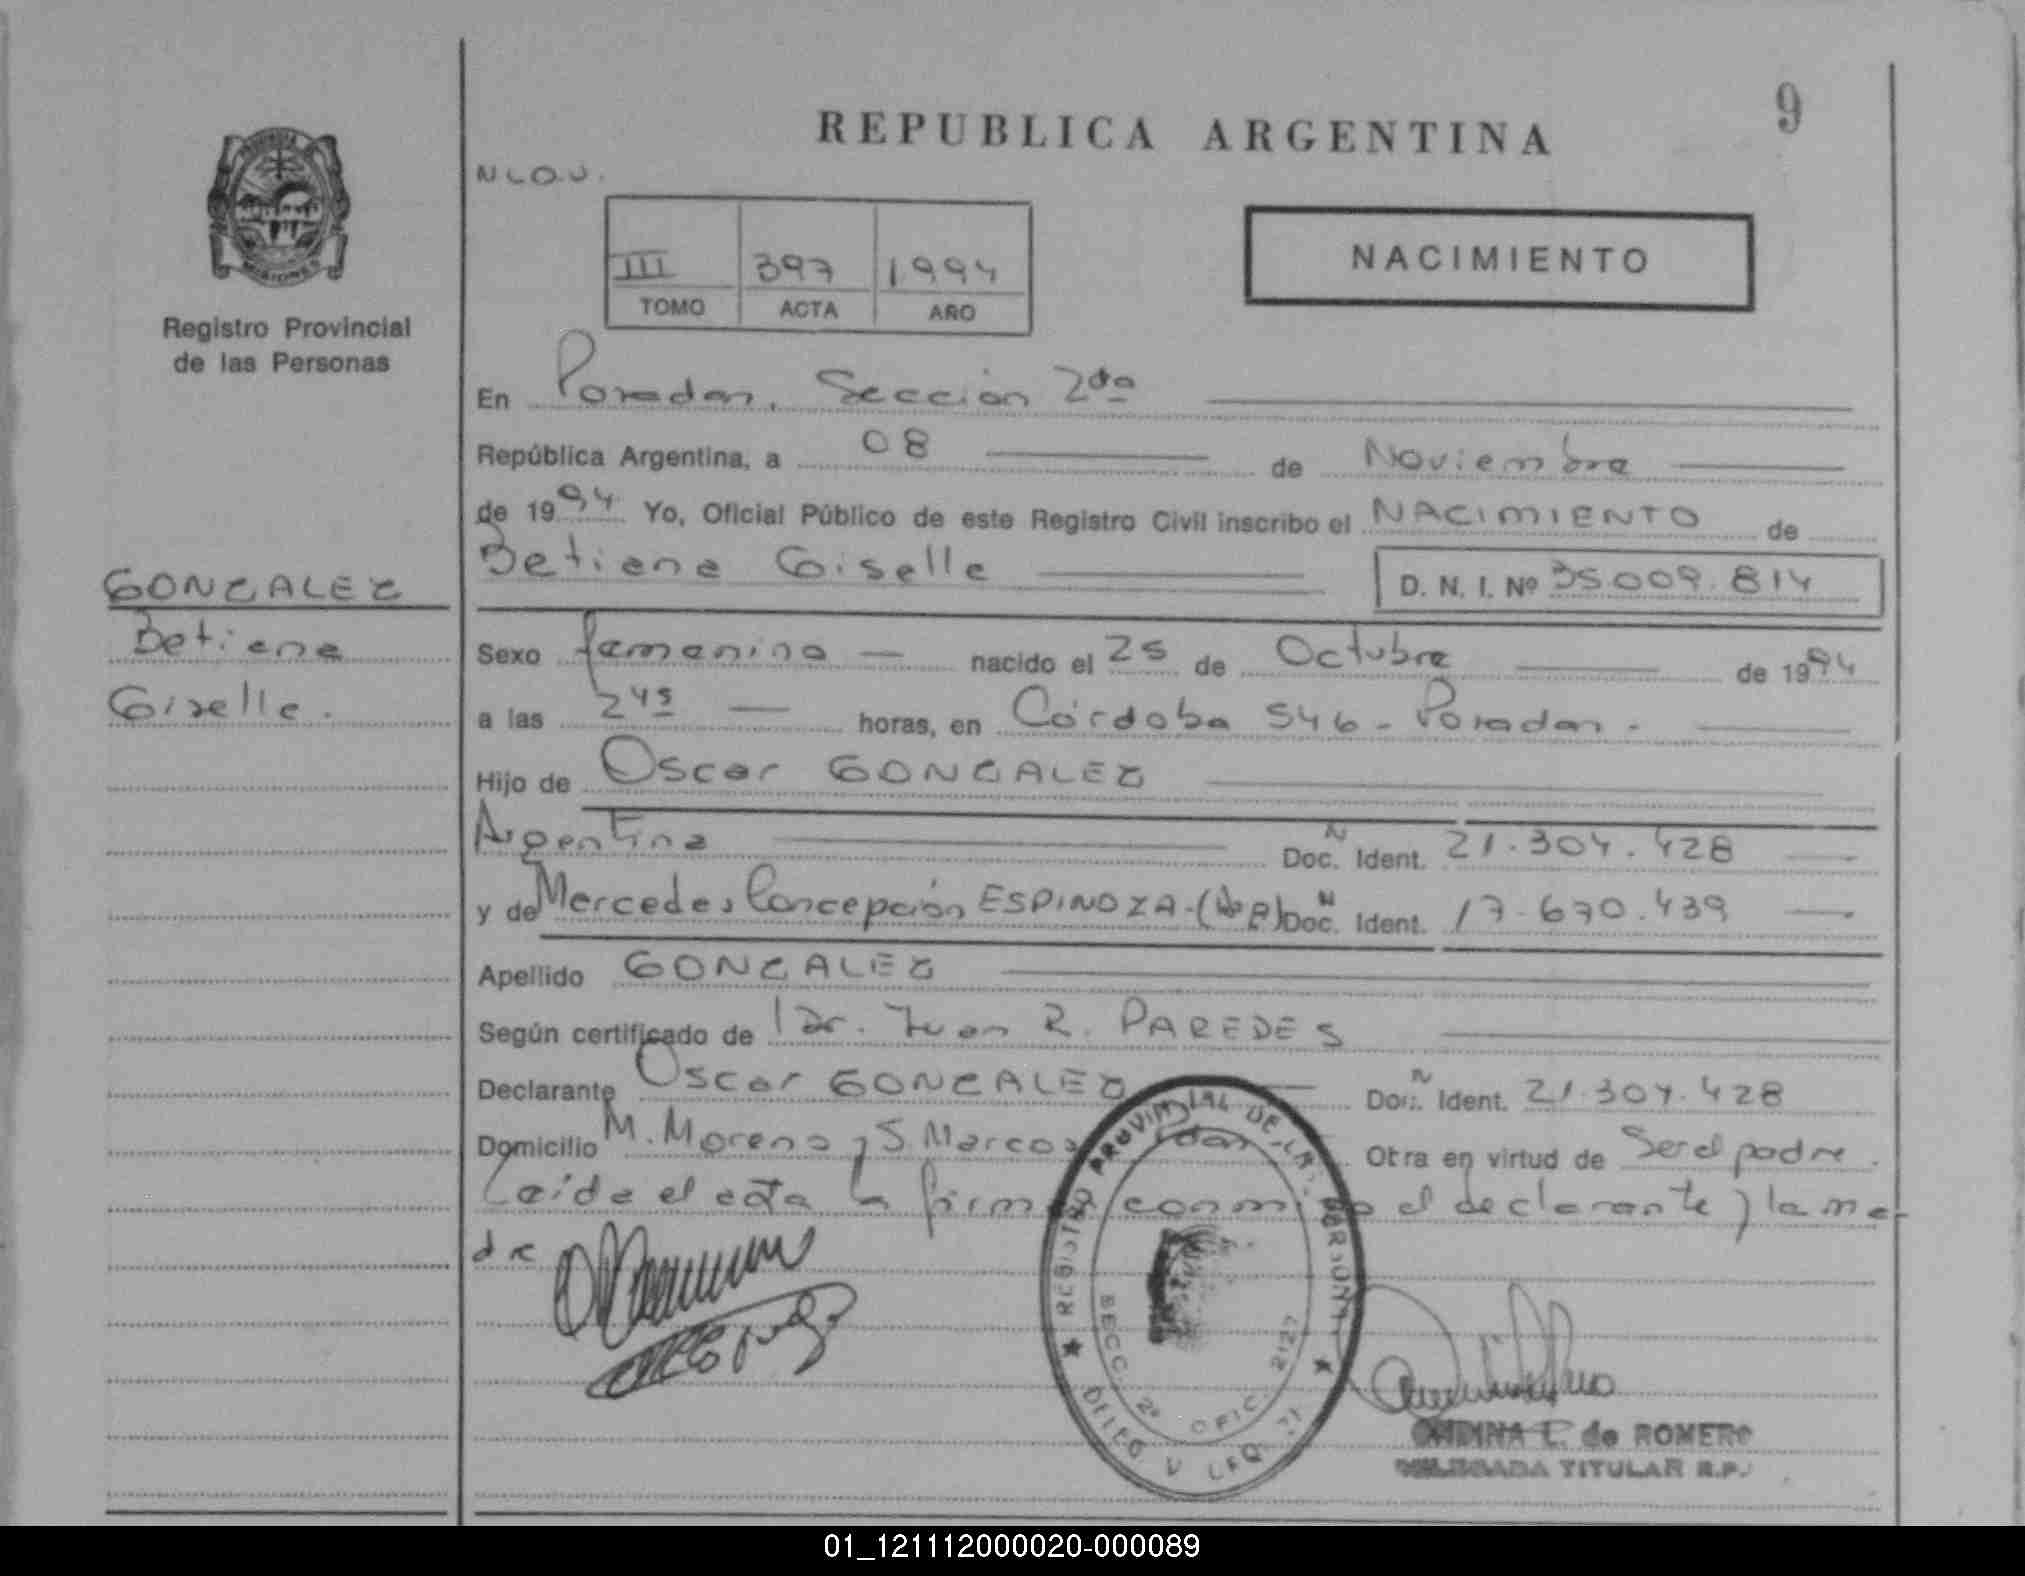 REPUBLICA ARGENTINA
9
PROVINCIA
MISIONES
Registro Provincial
de las Personas
N.L.O.U.
III 397 1994
TOMO ACTA AÑO
NACIMIENTO
En Posadas, Sección 2da
República Argentina, a 08 de Noviembre
de 1994 Yo, Oficial Público de este Registro Civil inscribo el NACIMIENTO de
Betiana Giselle D. N. I. Nº 35.009.814
GONZALEZ
Betiana
Giselle.
Sexo femenino nacido el 25 de Octubre de 1994
a las 24s horas, en Córdoba 546 - Posadas -
Hijo de Oscar GONZALEZ
Argentina Doc. Ident. 21.304.428
y de Mercedes Concepción ESPINOZA - Doc. Ident. 17.670.439
Apellido GONZALEZ
Según certificado de Dr. Juan R. PAREDES
Declarante Oscar GONZALEZ Doc. Ident. 21.304.428
Domicilio M. Moreno y S. Marcos Pdas Otra en virtud de Ser el padre.
Leída el acta la firman conmigo el declarante y la ma-
dre
REGISTRO PROVINCIAL DE LAS PERSONAS
SECC. 2ª OFIC. 2127
DELEG.
de ROMERO
DELEGADA TITULAR R.P.
01_121112000020-000089